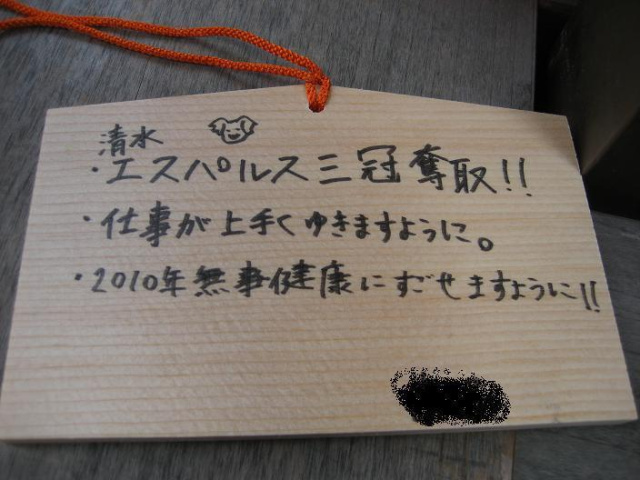 清水
・エスパルス三冠奪取!!
・仕事が上手くゆきますように。
・2010年無事健康にすごせますように!!